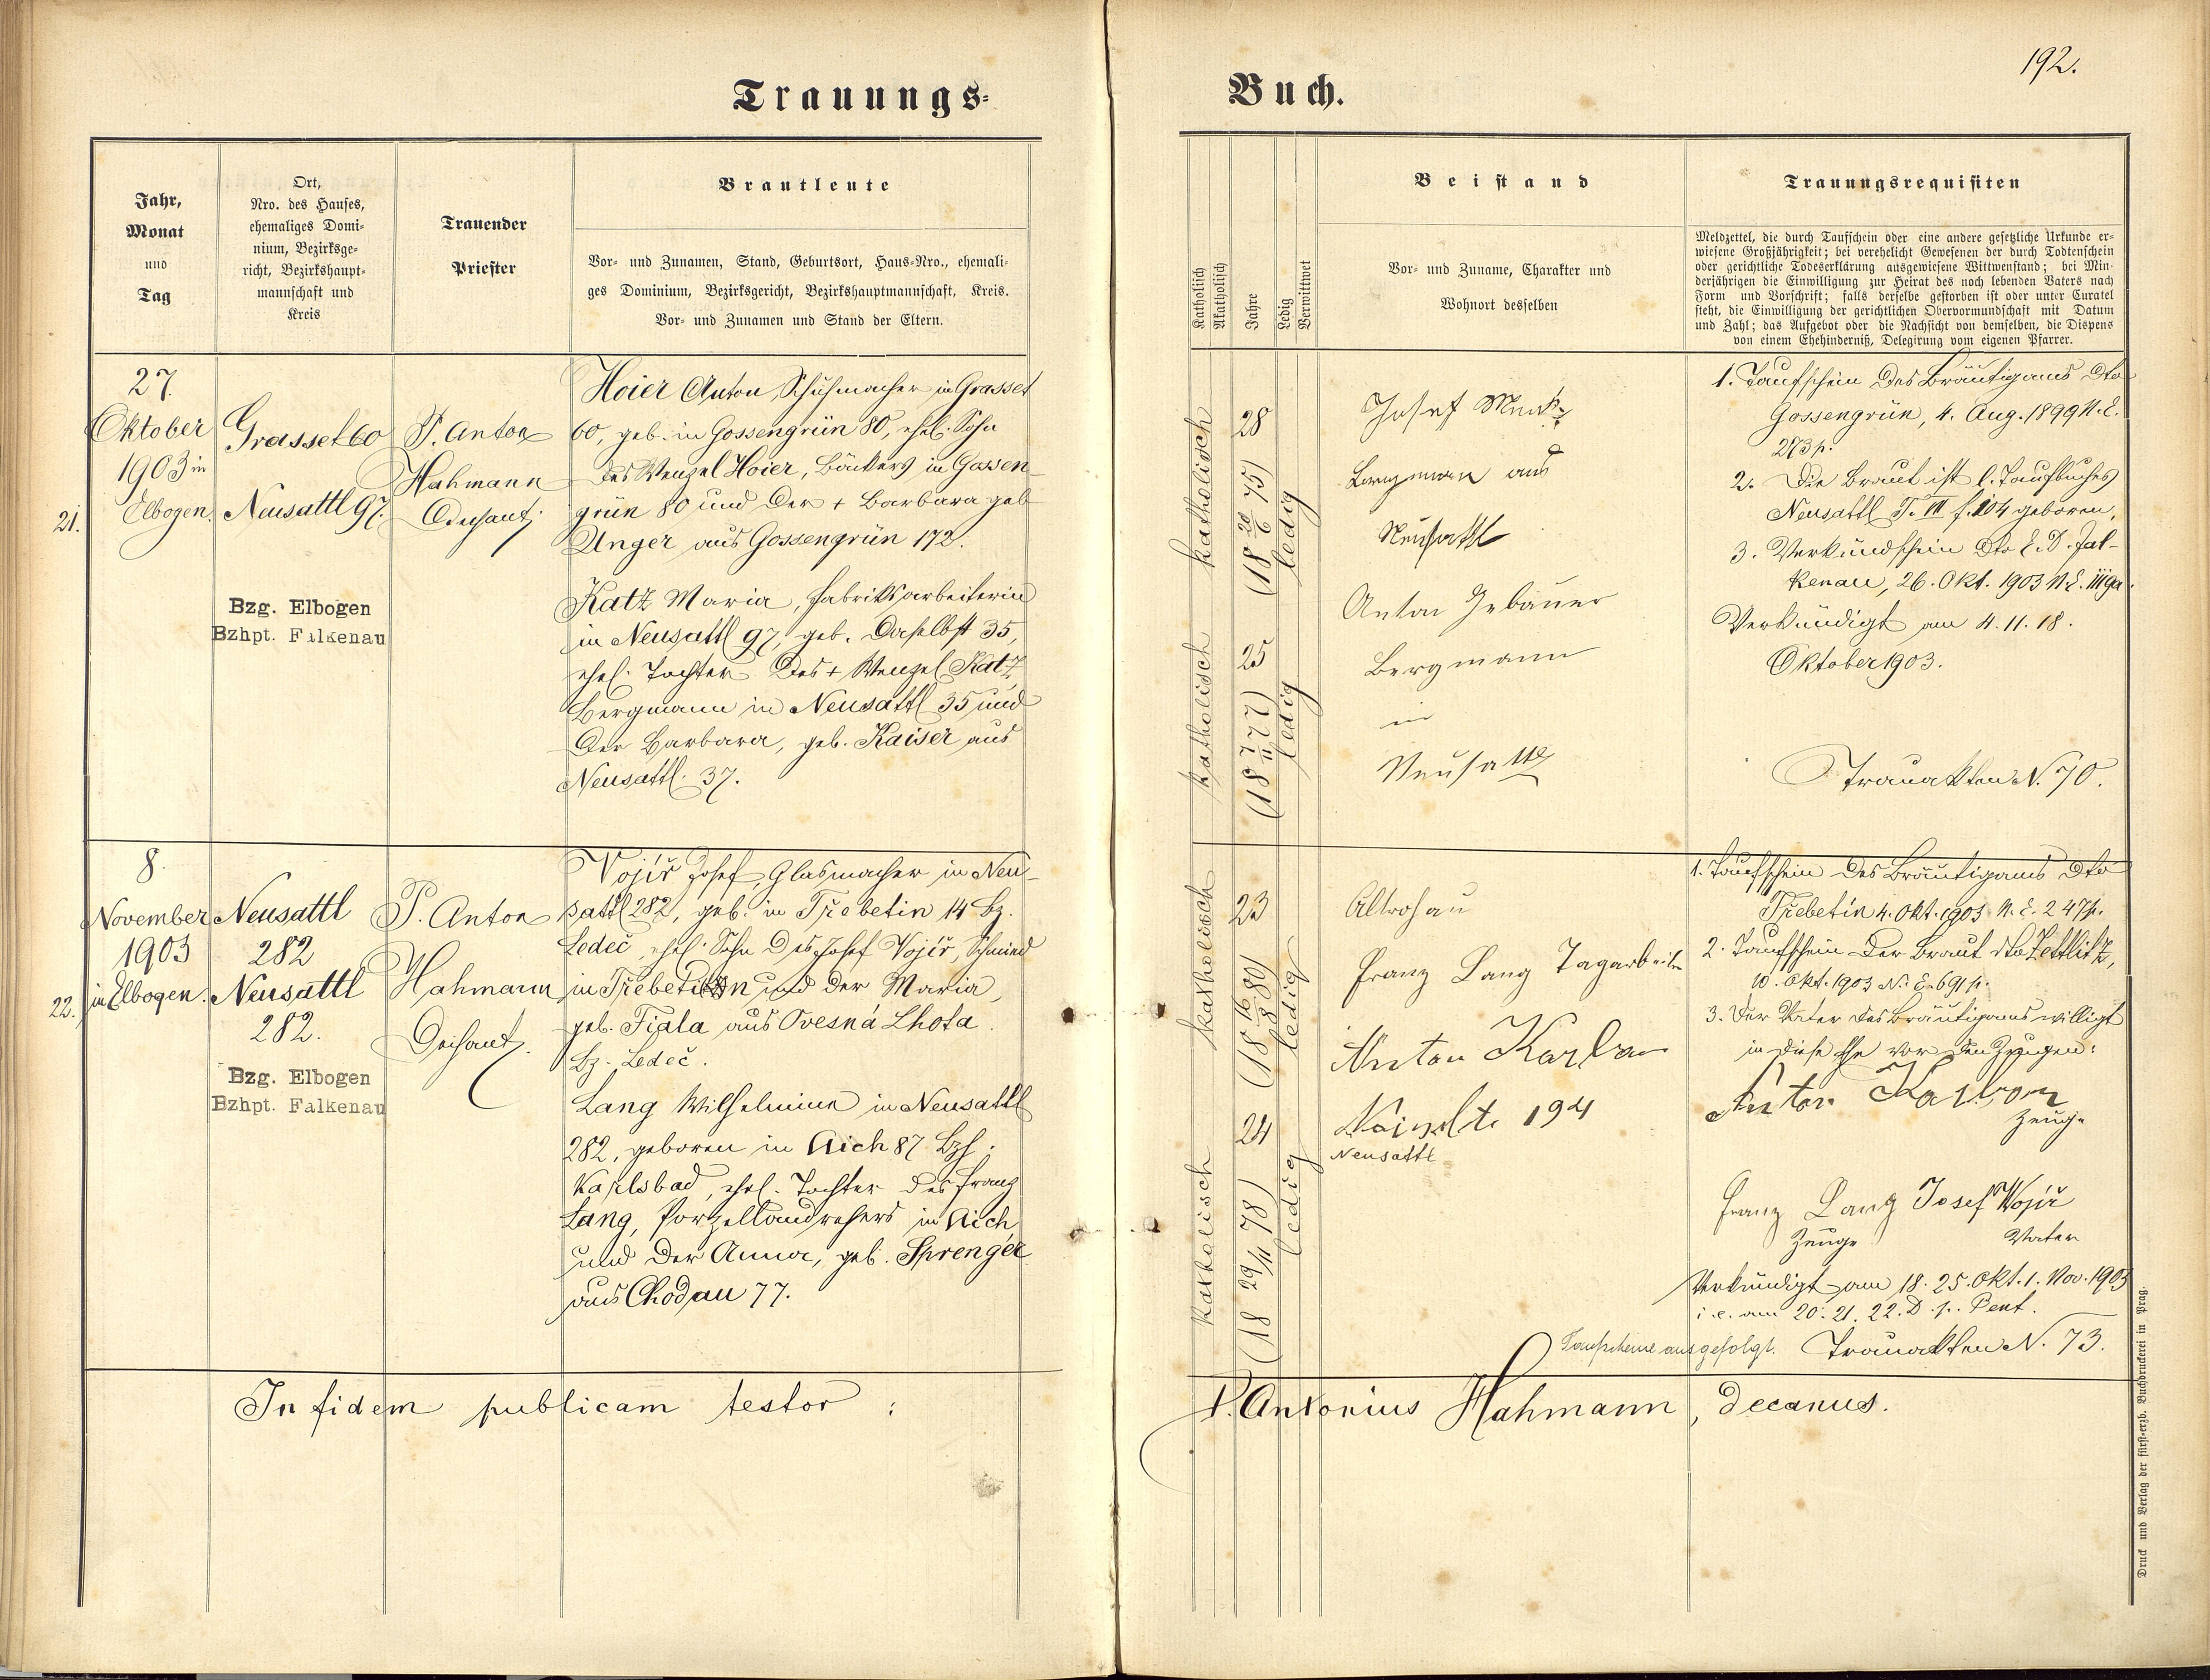 192.
Trauungs-
Buch.
Jahr,
Monat
und
Tag
Ort,
Nro. des Hauses,
ehemaliges Domi-
nium, Bezirksge-
richt, Bezirkshaupt-
mannschaft und
Kreis
Trauender
Priester
Brautleute
Vor- und Zunamen, Stand, Geburtsort, Haus-Nro., ehemali-
ges Dominium, Bezirksgericht, Bezirkshauptmannschaft, Kreis.
Vor- und Zunamen und Stand der Eltern.
Katholisch
Akatholisch
Jahre
Ledig
Verwittwet
Beistand
Vor- und Zuname, Charakter und
Wohnort desselben
Trauungsrequisiten
Meldzettel, die durch Taufschein oder eine andere gesetzliche Urkunde er-
wiesene Großjährigkeit; bei verehelicht Gewesenen der durch Todtenschein
oder gerichtliche Todeserklärung ausgewiesene Wittwenstand; bei Min-
derjährigen die Einwilligung zur Heirat des noch lebenden Vaters nach
Form und Vorschrift; falls derselbe gestorben ist oder unter Curatel
steht, die Einwilligung der gerichtlichen Obervormundschaft mit Datum
und Zahl; das Aufgebot oder die Nachsicht von demselben, die Dispens
von einem Ehehinderniß, Delegirung vom eigenen Pfarrer.
21.
27.
Oktober
1903 in
Elbogen.
Grasset 60
Neusattl 97.
Bzg. Elbogen
Bzhpt. Falkenau
P. Anton
Hahmann
Dechant
Hoier Anton Schuhmacher in Grasset
60, geb. in Gossengrün 80, ehel. Sohn
des Wenzel Hoier, Bäckers in Gossen-
grün 80 und der + Barbara geb
Unger aus Gossengrün 172.
Katz Maria, Fabriksarbeiterin
in Neusattl 97, geb. daselbst 35,
ehel. Tochter des + Wenzel Katz
Bergmann in Neusattl 35 und
der Barbara, geb. Kaiser aus
Neusattl 37.
katholisch
28
(18 20/6 75)
ledig
katholisch
25
(18 7/11 77)
ledig
Josef
Bergmann aus
Neusattl
Anton Gebauer
Bergmann
in
Neusattl
1. Taufschein des Bräutigams dto
Gossengrün, 4. Aug. 1899 N. E.
273 p.
2. Die Braut ist l. Taufbuches
Neusattl T. VII f. 104 geboren,
3. Verkündschein dto E. D. Fal-
kenau, 26. Okt. 1903 N. E.
Verkündigt am 4. 11. 18.
Oktober 1903.
Trauakten N. 70.
22.
8.
November
1903
in Elbogen.
Neusattl
282
Neusattl
282.
Bzg. Elbogen
Bzhpt. Falkenau
P. Anton
Hahmann
Dechant
Vojíř Josef, Glasmacher in Neu-
sattl 282, geb. in Třebetin 14 Bz.
Ledeč, ehel. Sohn des Josef Vojíř, Schmied
in Třebetin und der Maria,
geb. Fiala aus Ovesná Lhota
Bz. Ledeč.
Lang Wilhelmine in Neusattl
282, geboren in Aich 87 Bzh.
Karlsbad, ehel. Tochter des Franz
Lang, Porzellandrehers in Aich
und der Anna, geb. Sprenger
aus Chodau 77.
katholisch
23
(18 16/8 80)
ledig
katholisch
24
(18 29/11 78)
ledig
Altrohau
Franz Lang Tagarbeiter
Anton
194
Neusattl
1. Taufschein des Bräutigams dto
Třebetín 4. Okt. 1903 N. E. 247 p.
2. Taufschein der Braut dto Zettlitz,
10. Okt. 1903 N. E. 691 p.
3. Der Vater des Bräutigams willigt
in diese Ehe vor den Zeugen:
Anton
Zeuge
Franz Lang Josef Vojíř
Zeuge Vater
Verkündigt am 18. 25. Okt. 1. Nov. 1903
i. e. am 20. 21. 22. D. p. Pent.
Taufscheine ausgefolgt. Trauakten N. 73.
In fidem publicam testor :
P. Antonius Hahmann, decanus.
Druck und Verlag der fürst-erzb. Buchdruckerei in Prag.